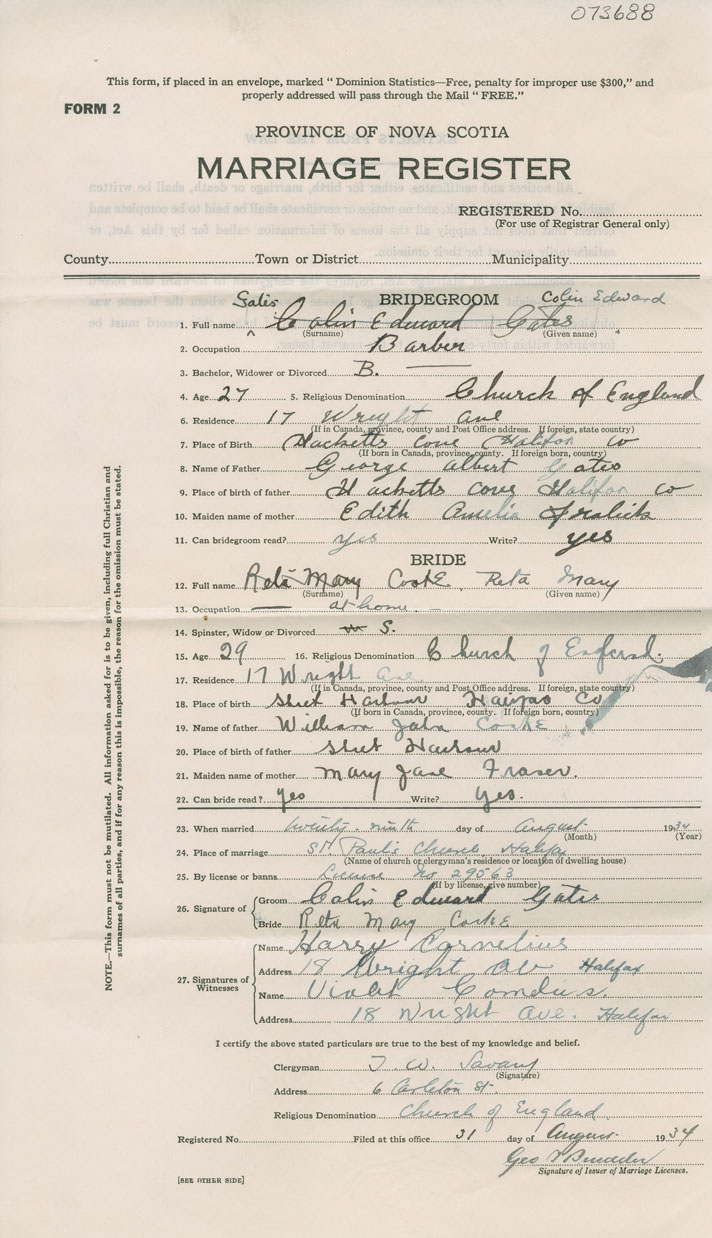 073688
This form, if placed in an envelope, marked " Dominion Statistics—Free, penalty for improper use $300," and
properly addressed will pass through the Mail " FREE."
FORM 2
PROVINCE OF NOVA SCOTIA
MARRIAGE REGISTER
REGISTERED No.
(For use of Registrar General only)
County Town or District Municipality
Gates BRIDEGROOM Colin Edward
1. Full name Colin Edward Gates
(Surname) (Given name)
2. Occupation Barber
3. Bachelor, Widower or Divorced B.
4. Age 27 5. Religious Denomination Church of England
6. Residence 17 Wright ave
(If in Canada, province, county and Post Office address. If foreign, state country)
7. Place of Birth Hacketts cove Halifax co
(If born in Canada, province, county. If foreign born, country)
8. Name of Father George albert Gates
9. Place of birth of father Hacketts cove Halifax co
10. Maiden name of mother Edith Amelia Fralick
11. Can bridegroom read? yes Write? yes
BRIDE
12. Full name Reta Mary Cooke Reta Mary
(Surname) (Given name)
13. Occupation — at home —
14. Spinster, Widow or Divorced S.
15. Age 29 16. Religious Denomination Church of England.
17. Residence 17 Wright ave.
(If in Canada, province, county and Post Office address. If foreign, state country)
18. Place of birth Sheet Harbour Halifax Co
(If born in Canada, province, county. If foreign born, country)
19. Name of father William John Cooke
20. Place of birth of father Sheet Harbour
21. Maiden name of mother Mary Jane Fraser.
22. Can bride read? yes Write? Yes.
23. When married twenty-ninth day of August 1934
(Month) (Year)
24. Place of marriage St Paul's Church, Halifax
(Name of church or clergyman's residence or location of dwelling house)
25. By license or banns License No 29563
(If by license, give number)
26. Signature of Groom Colin Edward Gates
Bride Reta Mary Cooke
27. Signatures of Witnesses Name Harry Cornelius
Address 18 Wright Av Halifax
Name Violet Cornelius.
Address 18 Wright Ave. Halifax
I certify the above stated particulars are true to the best of my knowledge and belief.
Clergyman T. W. Savary
(Signature)
Address 6 Carleton St.
Religious Denomination Church of England.
Registered No. Filed at this office 31 day of August 1934
Geo
Signature of Issuer of Marriage Licenses.
[SEE OTHER SIDE]
NOTE.—This form must not be mutilated. All information asked for is to be given, including full Christian and
surnames of all parties, and if for any reason this is impossible, the reason for the omission must be stated.